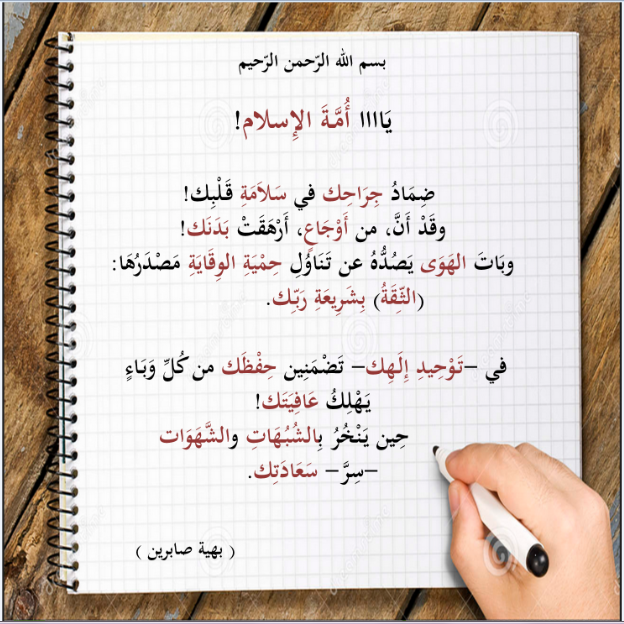 بسم الله الرّحمن الرّحيم
يَاااا أُمَّةَ الإِسلام!
ضِمَادُ جِرَاحِك في سَلاَمَةِ قَلْبِك!
وقَدْ أَنَّ، من أَوْجَاعٍ، أَرْهَقَتْ بَدَنَك!
وبَاتَ الهَوَى يَصُدُّهُ عن تَنَاوُلِ حِمْيَةِ الوِقَايَةِ مَصْدَرُهَا:
(الثِّقَةُ) بِشَرِيعَةِ رَبِّك.
في –تَوْحِيدِ إِلَهِك– تَضْمَنِين حِفْظَك من كُلِّ وَبَاءٍ
يَهْلِكُ عَافِيَتَك!
حِين يَنْخُرُ بِالشُبُهَاتِ والشَّهَوَات
–سِرَّ– سَعَادَتِك.
( بهية صابرين )